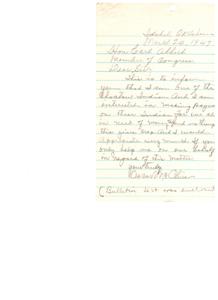 Idabel Oklahoma
March 24, 1947
Hon Carl Albert
Member of Congress
Dear Sir:
This is to inform
you that I am one of the
Choctaw Indian And I am
interested in Making Payment
on these Indian for we are
in need of money and
this year and I would
Appreciate very much if you
only help me on our
in regard of this Matter
yours truly
(Bulletin list was